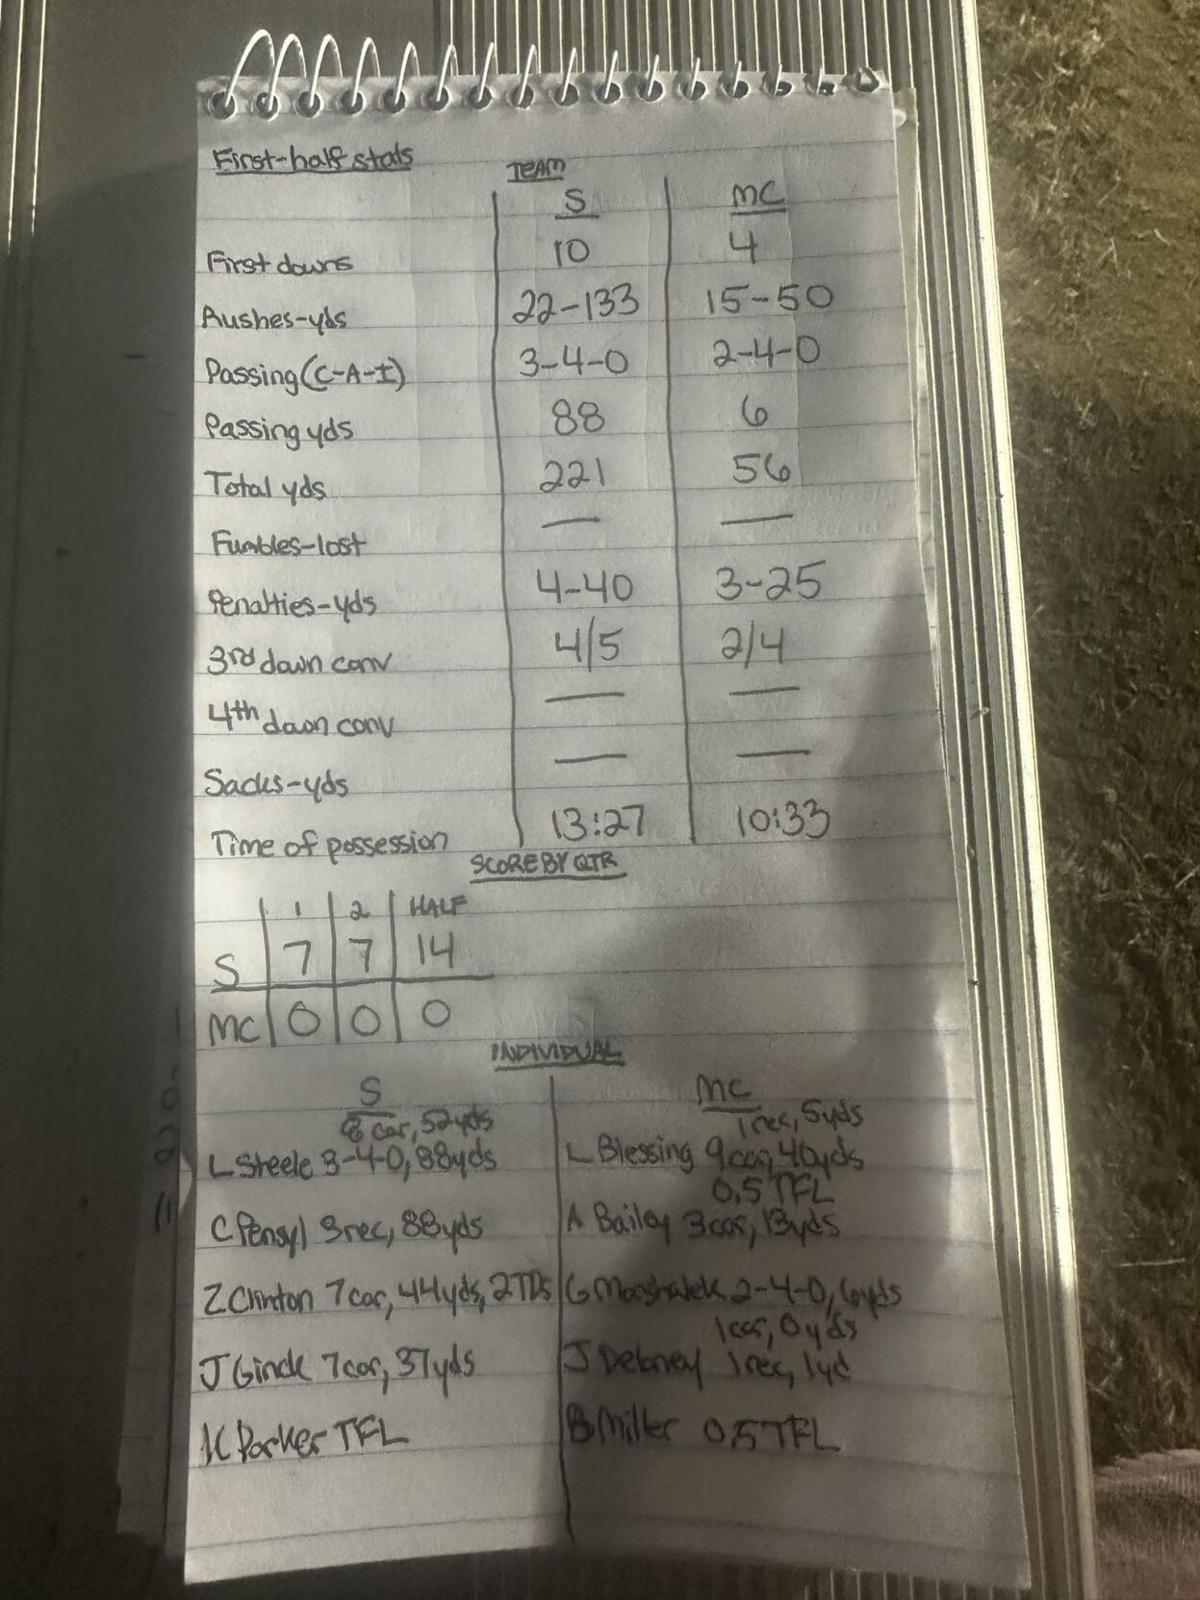 First-half stats
TEAM
S MC
First downs 10 4
Rushes-yds 22-133 15-50
Passing (C-A-I) 3-4-0 2-4-0
Passing yds 88 6
Total yds 221 56
Fumbles-lost — —
Penalties-yds 4-40 3-25
3rd down conv 4/5 2/4
4th down conv — —
Sacks-yds — —
Time of possession 13:27 10:33
SCORE BY QTR
1 2 HALF
S 7 7 14
MC 0 0 0
INDIVIDUAL
S
8 car, 52yds
L Steele 3-4-0, 88yds
C Pensyl 3rec, 88yds
Z Clinton 7car, 44yds, 2TDs
J Ginck 7car, 37yds
K Parker TFL
MC
1rec, 5yds
L Blessing 9car, 40yds
0.5 TFL
A Bailey 3car, 13yds
G Marshalek 2-4-0, 6yds
1car, 0yds
J Delaney 1rec, 1yd
B Miller 0.5TFL